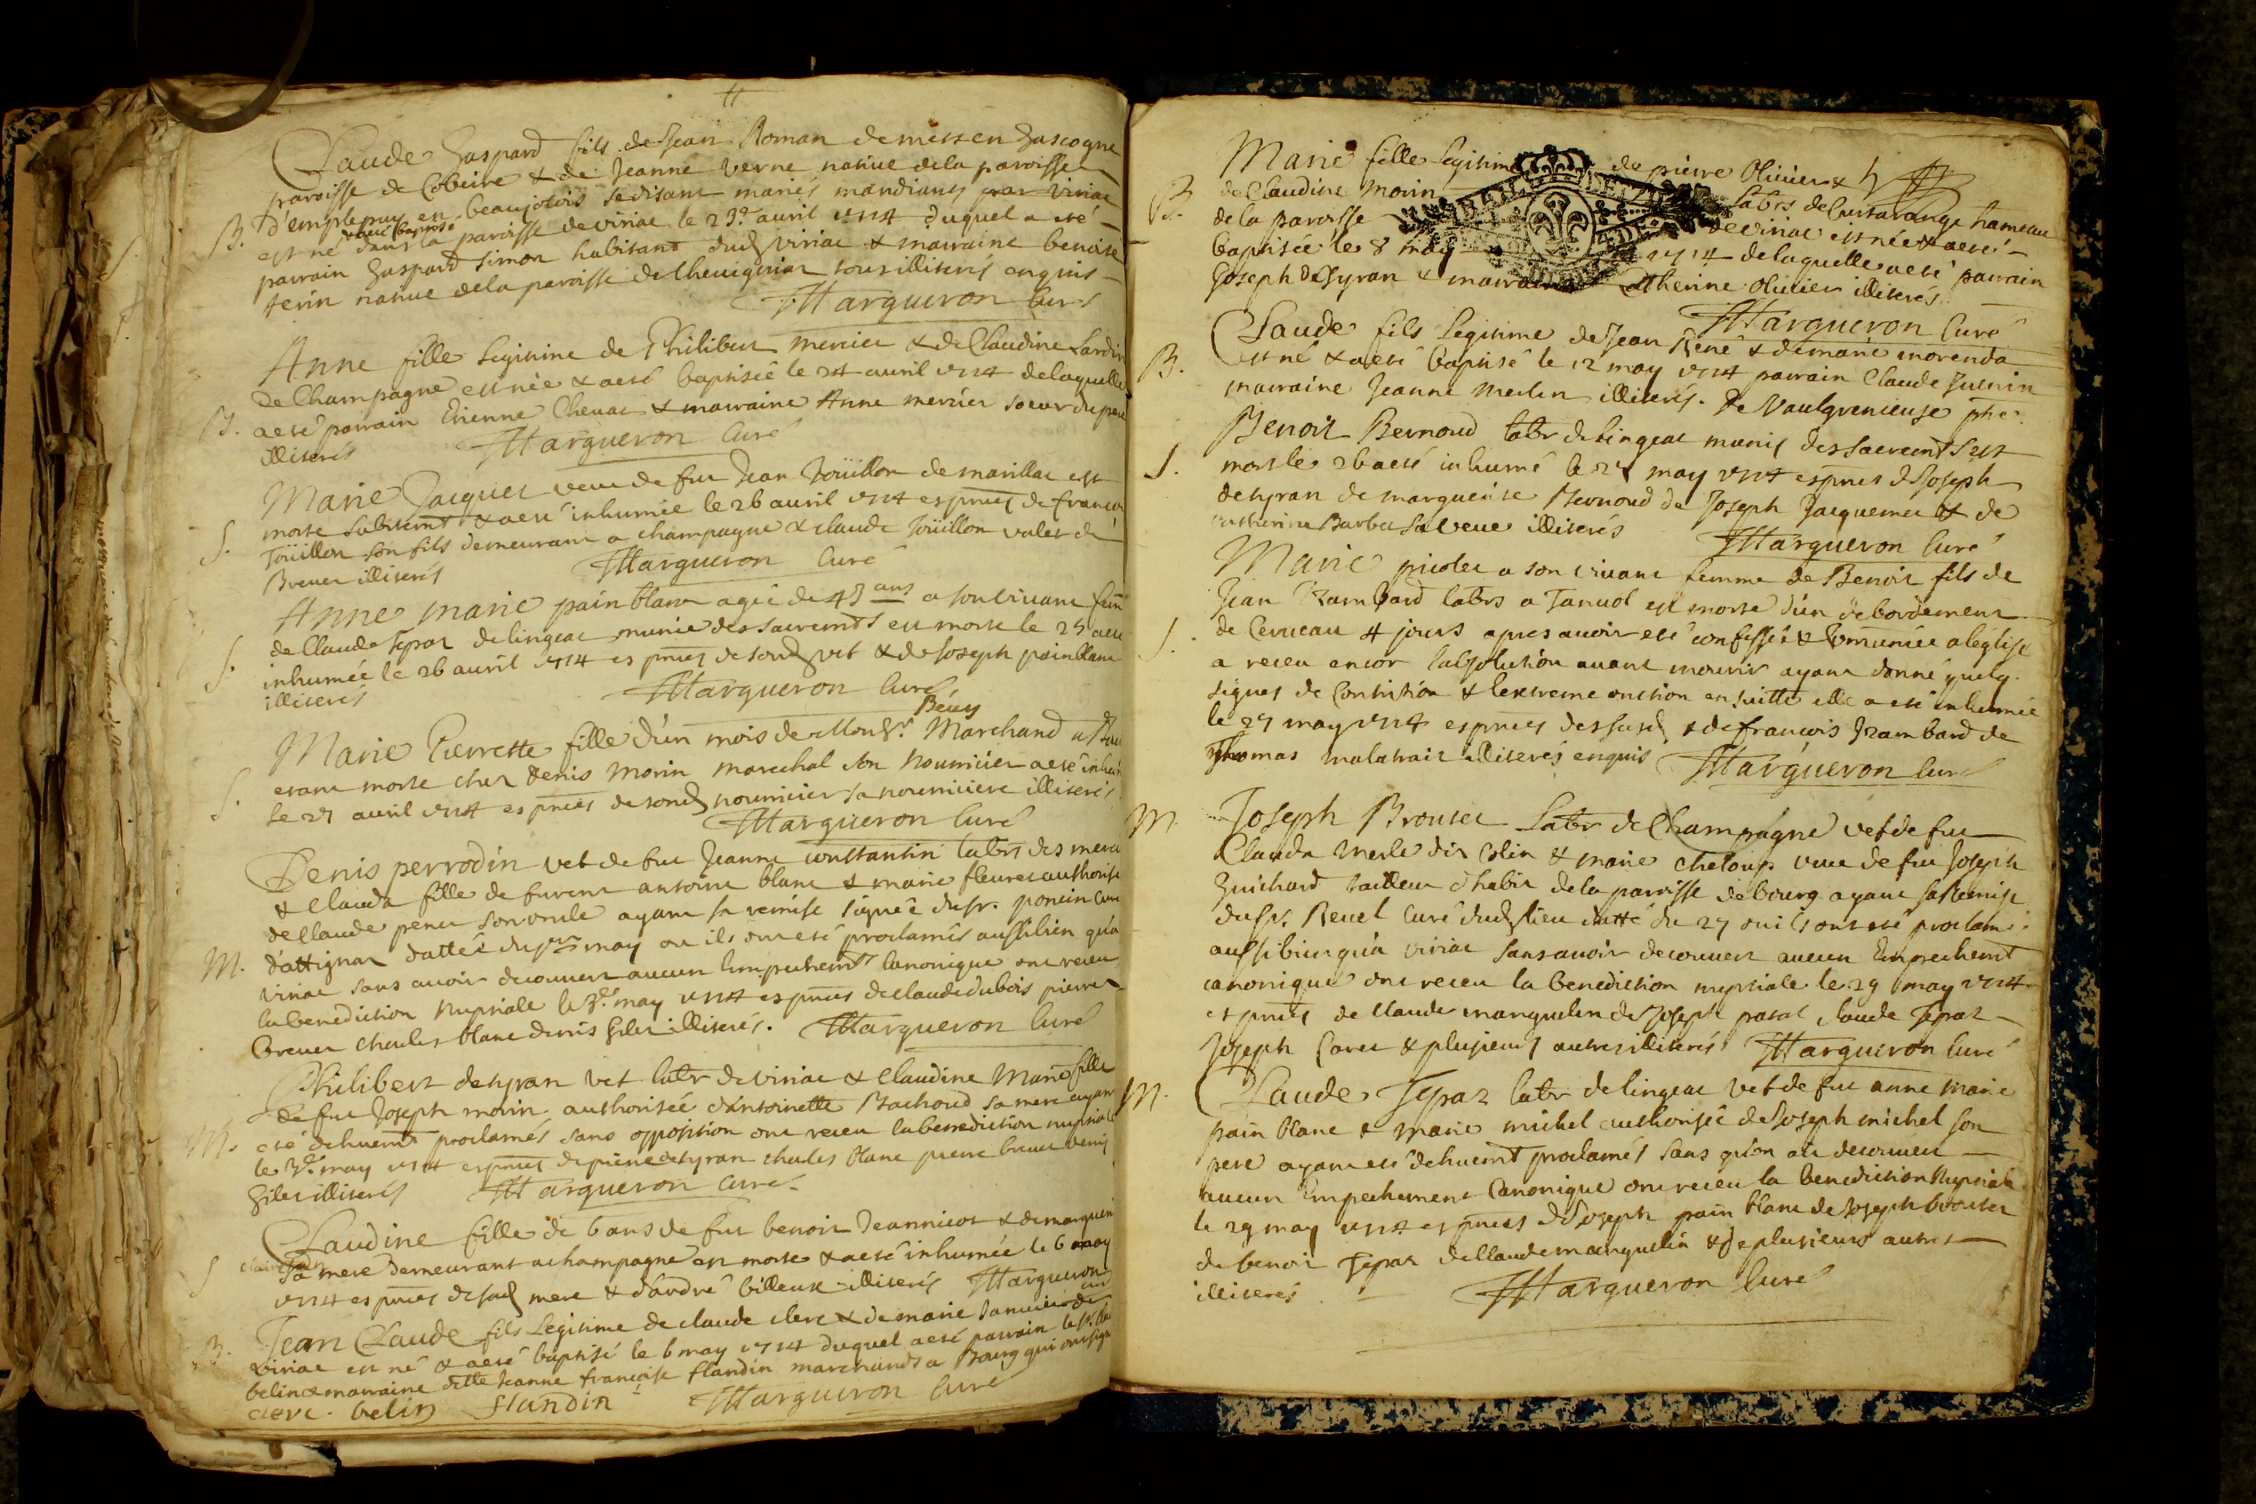 Claude Gaspard fils de Jean Roman de mets en gascogne
paroisse de & de Jeanne Verne native de la paroisse
B. en beaujolois se disant mariés mandians par viriac
est né & eté baptisé dans la paroisse de viriac le 23e avril 1714 duquel a eté
parrain gaspard simon habitant dud viriac & marraine benoite
terin native de la paroisse de tous illiterés enquis
Margueron Curé
Anne fille legitime de Philibert mercier & de Claudine Lardin
de Champagne est née & a eté baptisée le 24 avril 1714 de laquelle
B. a eté parrain Etienne Chevat & marraine Anne mercier soeur du pere
illiterés Margueron Curé
Marie Jacquet veuve de fut Jean Toüillon de marillat est
morte subitemt & a eté inhumée le 26 avril 1714 es pnces de francois
S. Toüillon son fils demeurant a champagne & claude Toüillon valet de
Brevet illiterés Margueron Curé
Anne marie pain blanc agée de 45 ans a son vivant fem
de Claude Tepaz de lingeat munie des sacremts est morte le 25 a eté
S. inhumée le 26 avril 1714 es pnces de sond vet & de Joseph painblanc
illiterés Margueron Curé
Marie Pierrette fille d'un mois de Monsr. Béuy Marchand a
etant morte chez denis Morin marechal son Nourricier a eté
S. le 27 avril 1714 es pnces de sond nourricier sa nourriciere illiterés
Margueron Curé
Denis perrodin vet de fut Jeanne constantin labr des
& Clauda fille de furent antoine blanc & marie fleuret authorisée
de Claude penet son oncle ayant sa remise signée du sr. poncin Curé
M. d'attignat dattée du 1er may ou ils ont eté proclamés aussi bien qu'a
viriac sans avoir decouvert aucun Empechemt Canonique ont receu
la benediction Nuptiale le 3e may 1714 es pnces de claude dubois pierre
brevet charles blanc denis Gilet illiterés. Margueron Curé
Philibert desyran vet labr de viriac & Claudine Marie fille
de fut Joseph morin authorisée d'Antoinette Bachoud sa mere ayant
M. eté dehuemt proclamés sans opposition ont receu la benediction nuptiale
le 3e may 1714 es pnces de pierre desyran charles blanc pierre brevet denis
Gilet illiterés Margueron Curé
Claudine fille de 6 ans de fut benoit Jeannicot & de marguerite
S sa mere demeurant a champagne est morte & a eté inhumée le 6 may
1714 es pnces de sad mere & d'andré billeux illiterés Margueron curé
Jean Claude fils Legitime de claude clerc & de marie de
B. viriac est né & a eté baptisé le 6 may 1714 duquel a eté parrain le sr.
belin & marraine dlle Jeanne francoise flandin marchands a Bourg qui ont signé
clerc. belin Flandin Margueron Curé
Marie fille legitime de pierre Olivier &
B. de Claudine Morin labrs de hameau
de la paroisse de viriac est née & a eté
baptisée le 8 may 1714 de laquelle a eté parrain
Joseph Desyran & marraine Catherine Olivier illiterés.
Margueron Curé
Claude fils legitime de Jean René & de marie morenda
B. est né & a eté baptisé le 12 may 1714 parrain Claude Juenin
marraine Jeanne Merlin illiterés. de Vaulgrenieuse
Benoit Bernoud labr de lingeat munis des sacremts est
S. mort le 26 a eté inhumé le 27 may 1714 es pnces de Joseph
desyran de marguerite Bernoud de Joseph Jacquemet & de
catherine Barbet sa veuve illiterés Margueron Curé
Marie picolet a son vivant femme de Benoit fils de
Jean labrs a Tanvol est morte d'un debordement
S. de Cerveau 4 jours apres avoir eté confessée & Comuniée a leglise
a receu encor l'absolution avant mourir ayant donné quelq.
signes de Contrition & lextreme onction en suitte elle a eté inhumée
le 27 may 1714 es pnces des susd & de francois de
Thomas malatrait illiterés enquis Margueron Curé
M. Joseph Broutet labr de Champagne vet de fut
Clauda Merle dit Colin & marie cheloup veuve de fut Joseph
Guichard tailleur d'habit de la paroisse de bourg ayant sa Remise
du sr. Revel Curé dud lieu datté du 27 ou ils ont eté proclamés
aussi bien qu'a viriac sans avoir decouvert aucun Empechemt
canonique ont receu la benediction nuptiale le 29 may 1714
es pnces de claude manguelin de Joseph paras claude Tepaz
Joseph Coret & plusieurs autres illiterés Margueron Curé
M. Claude Tepaz labr de lingeat vet de fut anne marie
pain blanc & marie michel authorisée de Joseph michel son
pere ayant eté dehuemt proclamés sans qu'on ait decouvert
aucun Empechement Canonique ont receu la benediction Nuptiale
le 29 may 1714 es pnces de Joseph pain blanc de Joseph broutet
de benoit Tepaz de Claude manguelin & de plusieurs autres
illiterés Margueron Curé